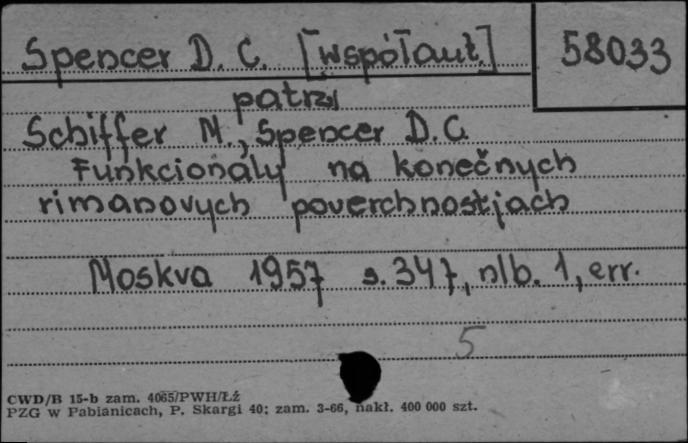 Spencer D. C. [współaut.] 58033
patrz
Schiffer M., Spencer D.C.
Funkcionaly na konečnych
rimanovych poverchnostjach
Moskva 1957 s. 347, nlb. 1, err.
5
CWD/B 15-b zam. 4065/PWH/Łź
PZG w Pabianicach, P. Skargi 40; zam. 3-66, nakł. 400 000 szt.